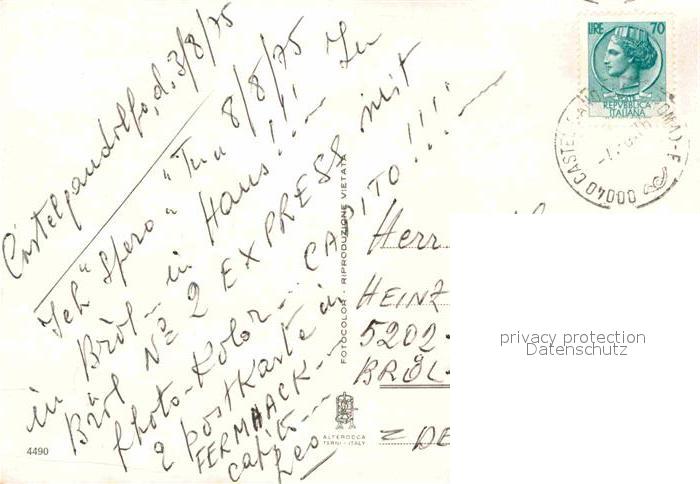 Castelgandolfo, d. 3/8/75
Ich "spero" Tu 8/8/75
in Bröl - in Haus!!! Zu
Bröl Nº 2 EXPRESS mit
photo-Kolor... CAPITO!!!!
2 postkarte in
FERMAACK...
capito...
Leo
4490
FOTOCOLOR - RIPRODUZIONE VIETATA
ALTEROCCA
TERNI - ITALY
LIRE 70
POSTE
REPUBBLICA
ITALIANA
00040 CASTEL
Herr.
HEINZ
5202-
BRÖL-
DE
privacy protection
Datenschutz